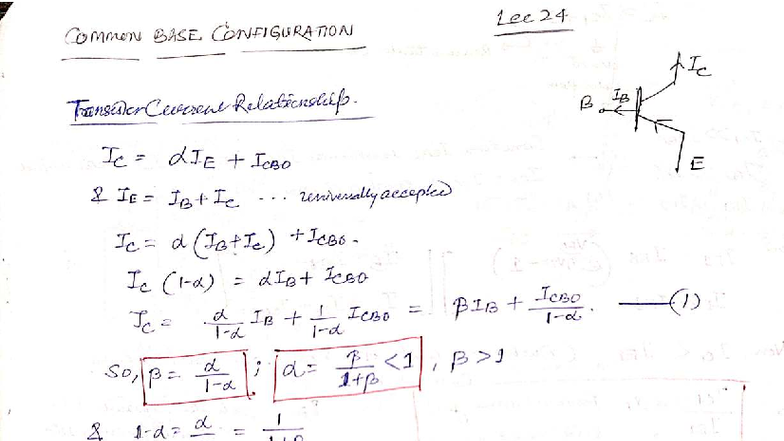 Lec 24
COMMON BASE CONFIGURATION
Transistor Current Relationship.
I_C
B I_B
E
I_C = αI_E + I_CBO
& I_E = I_B + I_C ... universally accepted
I_C = α(I_B + I_C) + I_CBO.
I_C (1-α) = αI_B + I_CBO
I_C = α/1-α I_B + 1/1-α I_CBO = βI_B + I_CBO/1-α. —(1)
So, β = α/1-α ; α = β/1+β <1 , β>1
& 1-α = α/ = 1/1+β